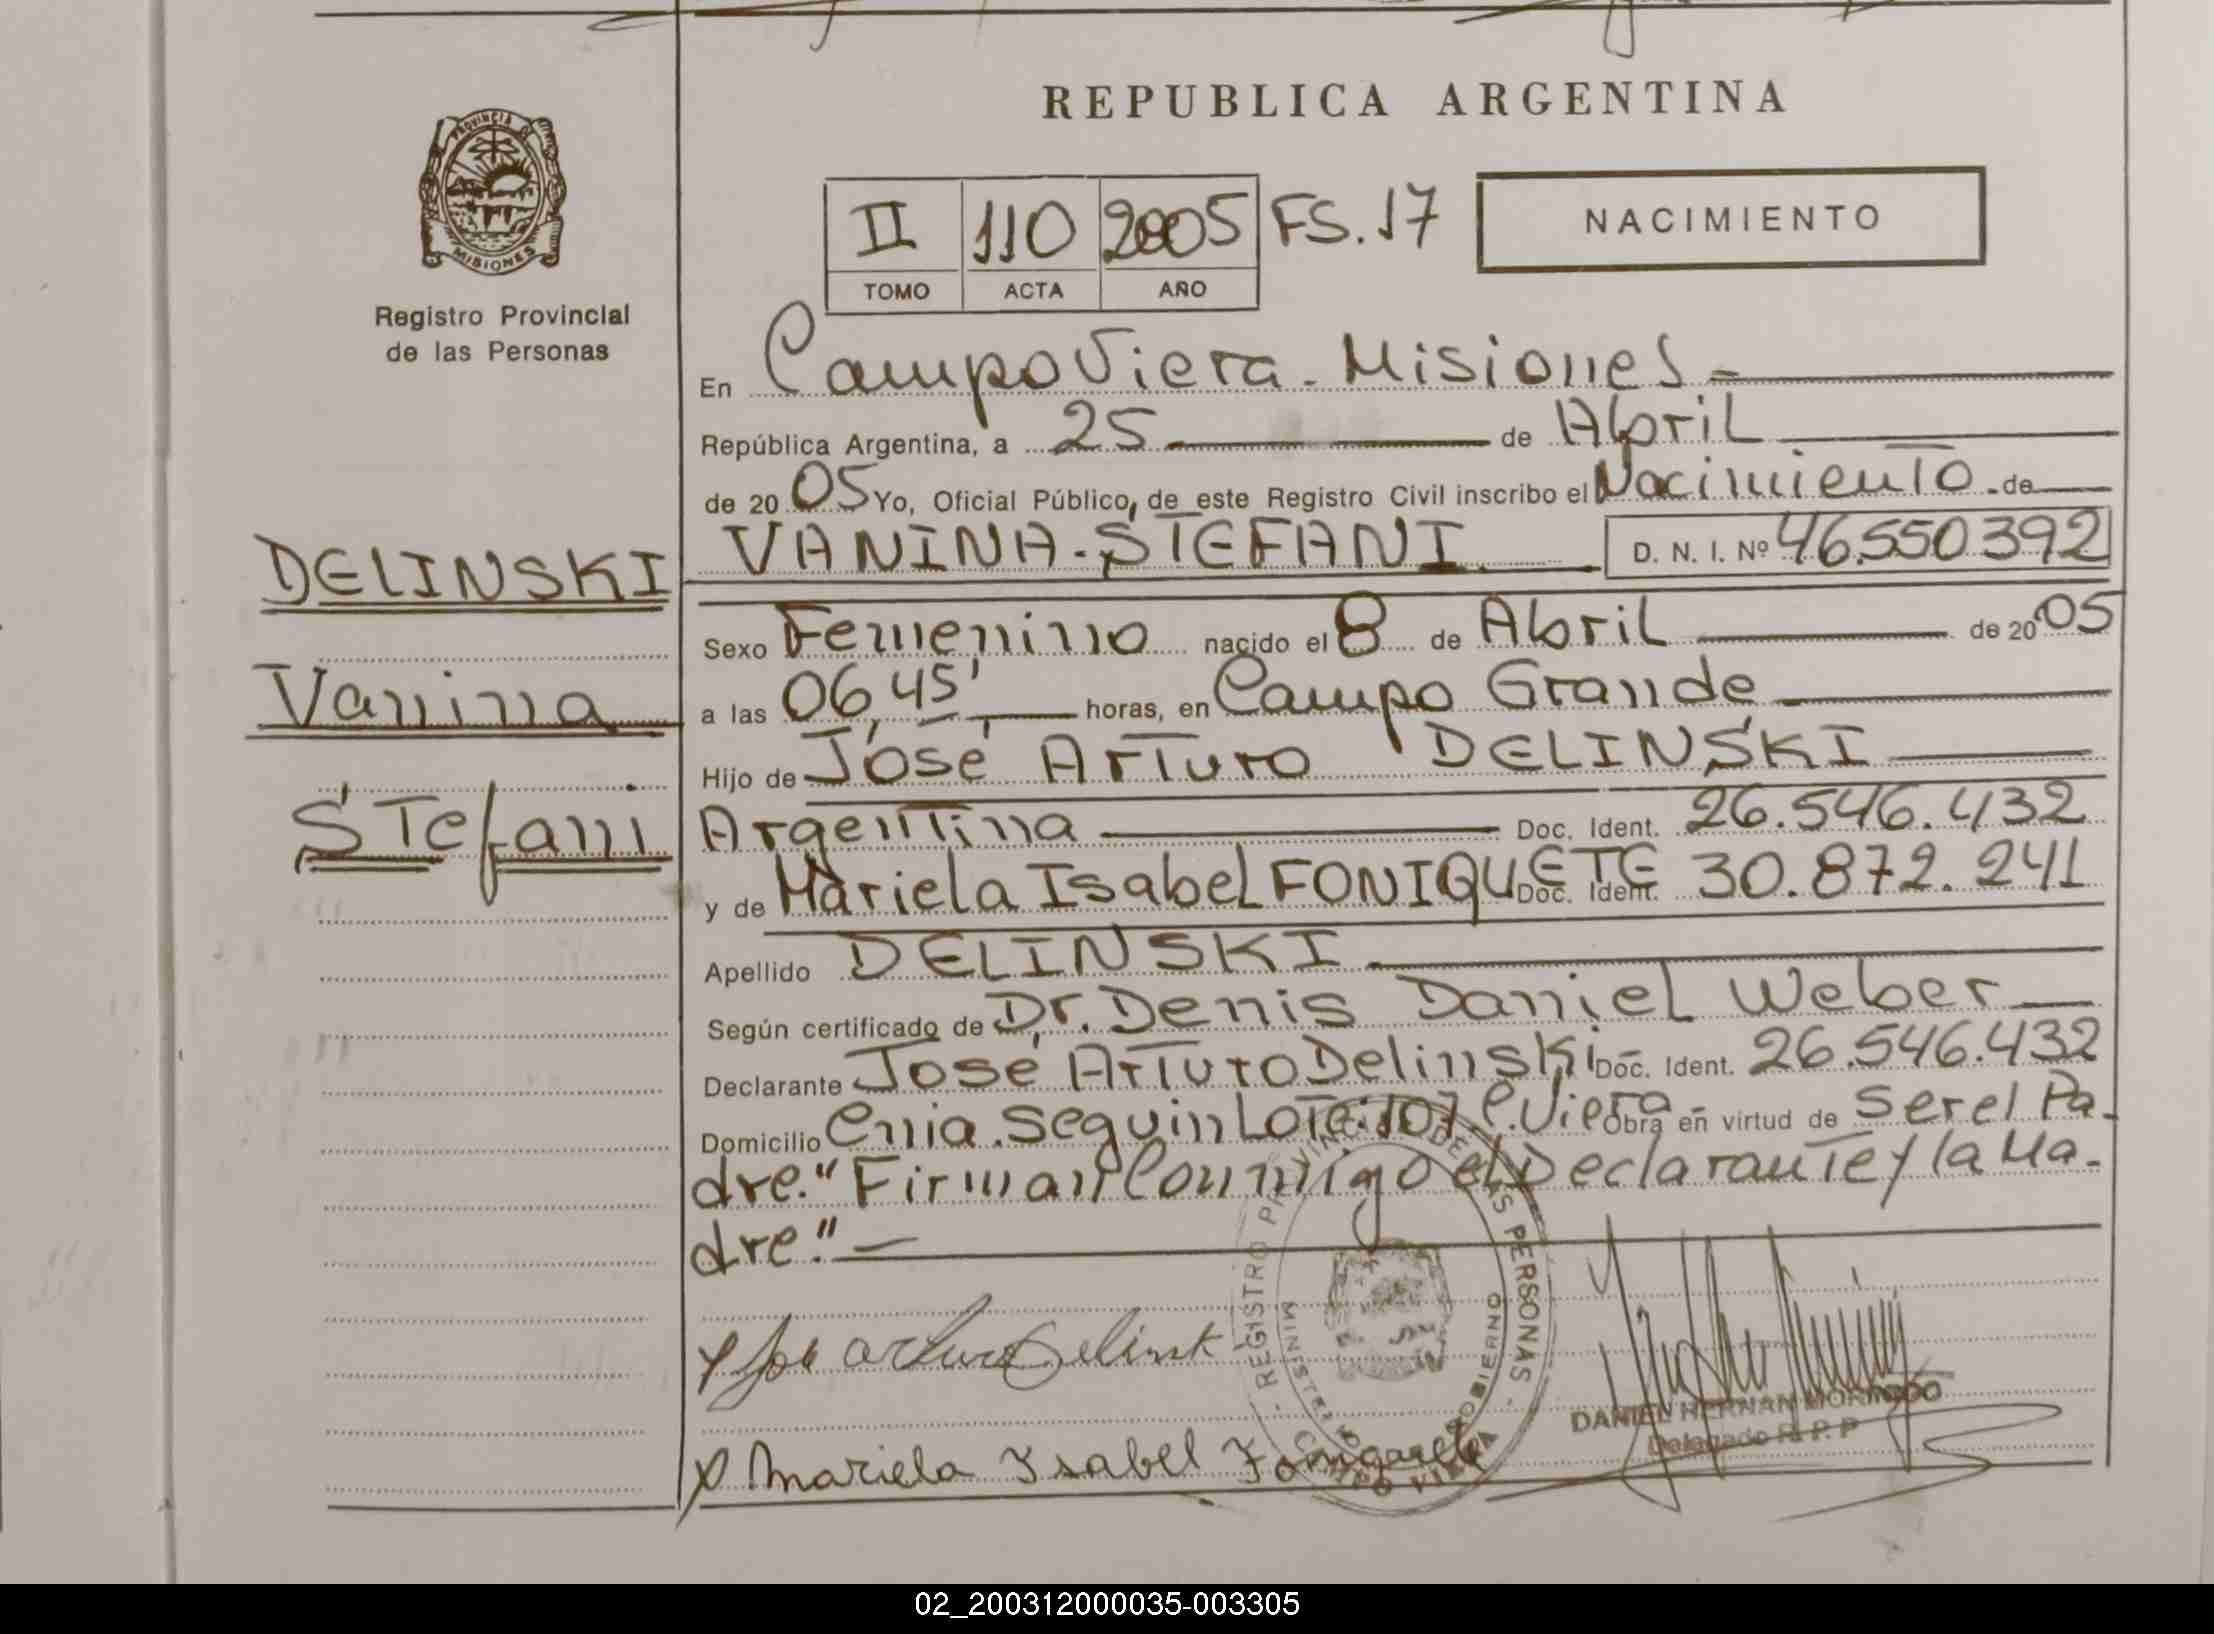 REPUBLICA ARGENTINA
PROVINCIA DE
MISIONES
Registro Provincial
de las Personas
II 110 2005 FS. 17
TOMO ACTA AÑO
NACIMIENTO
En Campo Viera - Misiones -
República Argentina, a 25 de Abril
de 20 05 Yo, Oficial Público, de este Registro Civil inscribo el Nacimiento - de
VANINA - STEFANI D. N. I. Nº 46.550392
DELINSKI
Vanina
Stefani
Sexo Femenino nacido el 8 de Abril de 20 05
a las 06,45' horas, en Campo Grande
Hijo de José Arturo DELINSKI
Argentina Doc. Ident. 26.546.432
y de Mariela Isabel FONIQUETE Doc. Ident. 30.872.241
Apellido DELINSKI
Según certificado de Dr. Denis Daniel Weber
Declarante José Arturo Delinski Doc. Ident. 26.546.432
Domicilio Cnia. Seguin Lote: 107 C. Viera - Obra en virtud de ser el Pa-
dre." Firman Conmigo el Declarante y la Ma-
dre." -
REGISTRO PROVINCIAL DE LAS PERSONAS
MINISTERIO GOBIERNO
CAMPO VIERA
DANIEL HERNAN
Delegado R. P. P
Mariela Isabel
02_200312000035-003305